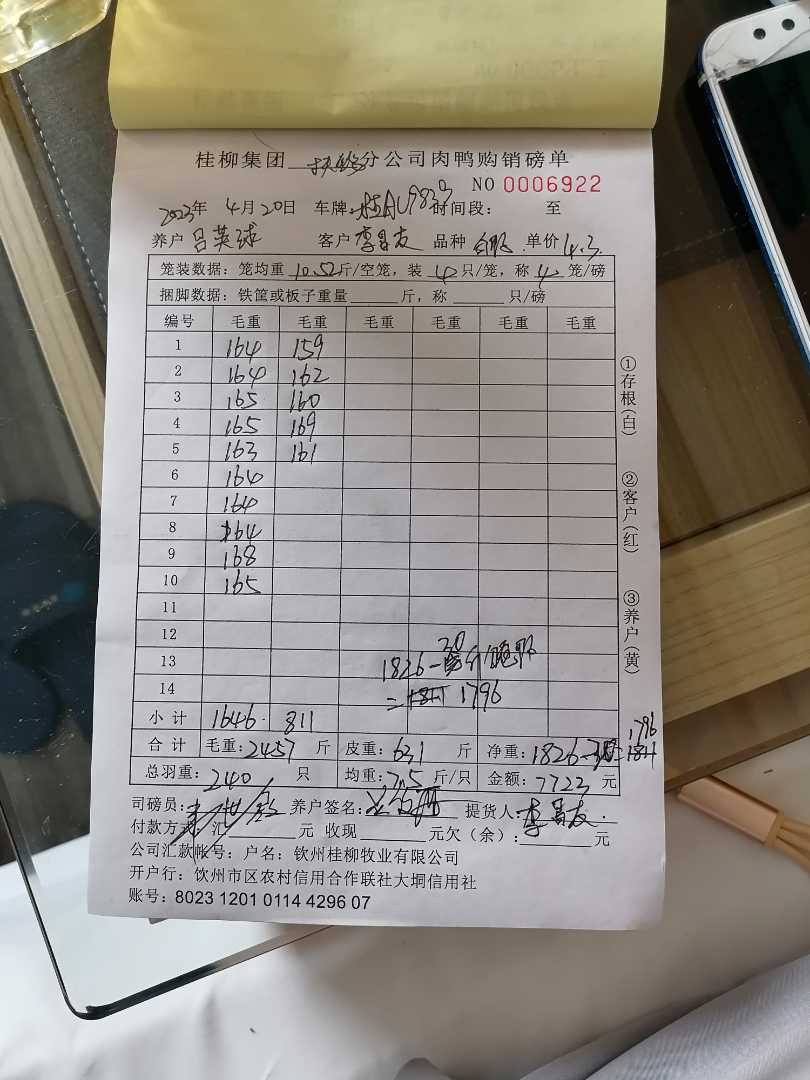 桂柳集团 扶绥 分公司肉鸭购销磅单
NO 0006922
2023年 4月20日 车牌: 时间段: 至
养户 吕英球 客户 李昌友 品种 白鸭 单价 4.3
笼装数据: 笼均重 10.52 斤/空笼, 装 4 只/笼, 称 4 笼/磅
捆脚数据: 铁筐或板子重量 斤, 称 只/磅
编号 毛重 毛重 毛重 毛重 毛重 毛重
1 164 159
2 164 162
3 165 160
4 165 169
5 163 161
6 164
7 164
8 164
9 168
10 165
11
12
13 1826-30
14 = 1811 1796
小计 1646 811
合计 毛重: 2457 斤 皮重: 631 斤 净重: 1826 1811 1796
总羽重: 240 只 均重: 7.5 斤/只 金额: 7723 元
司磅员: 养户签名: 提货人: 李昌友
付款方式: 汇 元 收现 元欠(余): 元
公司汇款帐号: 户名: 钦州桂柳牧业有限公司
开户行: 钦州市区农村信用合作联社大垌信用社
账号: 8023 1201 0114 4296 07
①存根(白)
②客户(红)
③养户(黄)